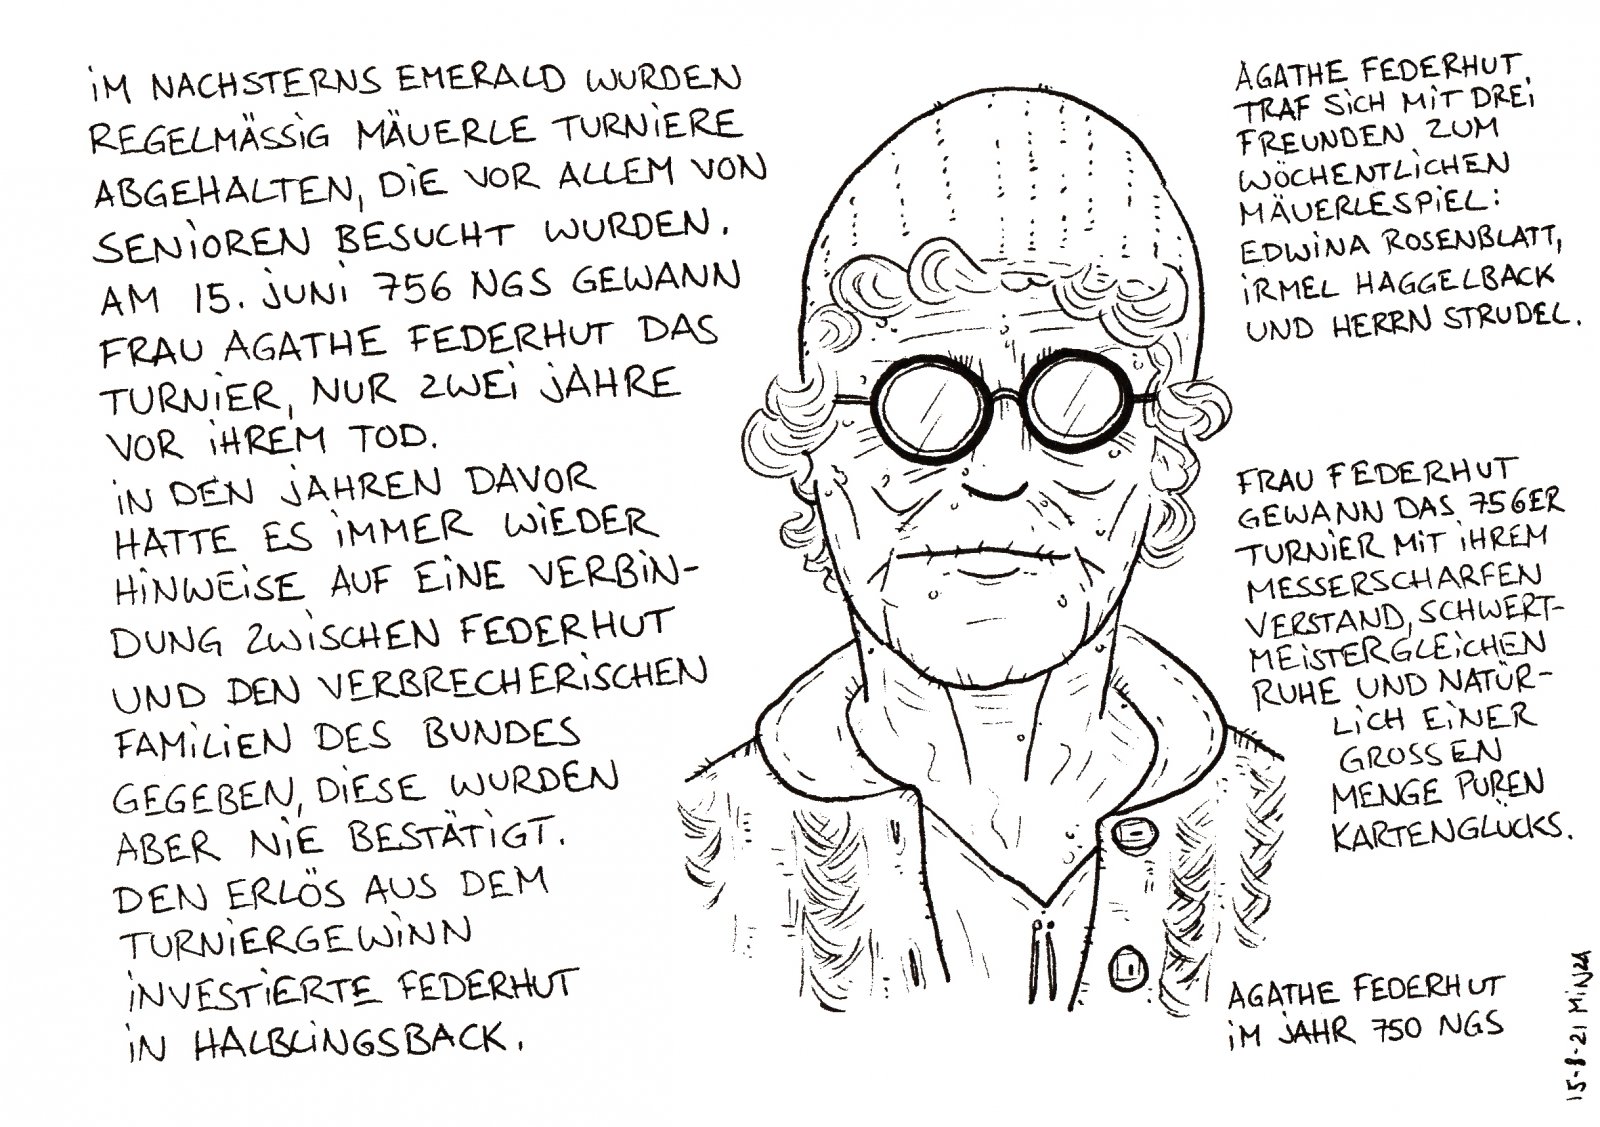 IM NACHSTERNS EMERALD WURDEN
REGELMÄSSIG MÄUERLE TURNIERE
ABGEHALTEN, DIE VOR ALLEM VON
SENIOREN BESUCHT WURDEN.
AM 15. JUNI 756 NGS GEWANN
FRAU AGATHE FEDERHUT DAS
TURNIER, NUR ZWEI JAHRE
VOR IHREM TOD.
IN DEN JAHREN DAVOR
HATTE ES IMMER WIEDER
HINWEISE AUF EINE VERBIN-
DUNG ZWISCHEN FEDERHUT
UND DEN VERBRECHERISCHEN
FAMILIEN DES BUNDES
GEGEBEN, DIESE WURDEN
ABER NIE BESTÄTIGT.
DEN ERLÖS AUS DEM
TURNIERGEWINN
INVESTIERTE FEDERHUT
IN HALBLINGSBACK.
AGATHE FEDERHUT,
TRAF SICH MIT DREI
FREUNDEN ZUM
WÖCHENTLICHEN
MÄUERLESPIEL:
EDWINA ROSENBLATT,
IRMEL HAGGELBACK
UND HERRN STRUDEL.
FRAU FEDERHUT
GEWANN DAS 756ER
TURNIER MIT IHREM
MESSERSCHARFEN
VERSTAND, SCHWERT-
MEISTERGLEICHEN
RUHE UND NATÜR-
LICH EINER
GROSSEN
MENGE PUREN
KARTENGLÜCKS.
AGATHE FEDERHUT
IM JAHR 750 NGS
15-8-21 MINZA